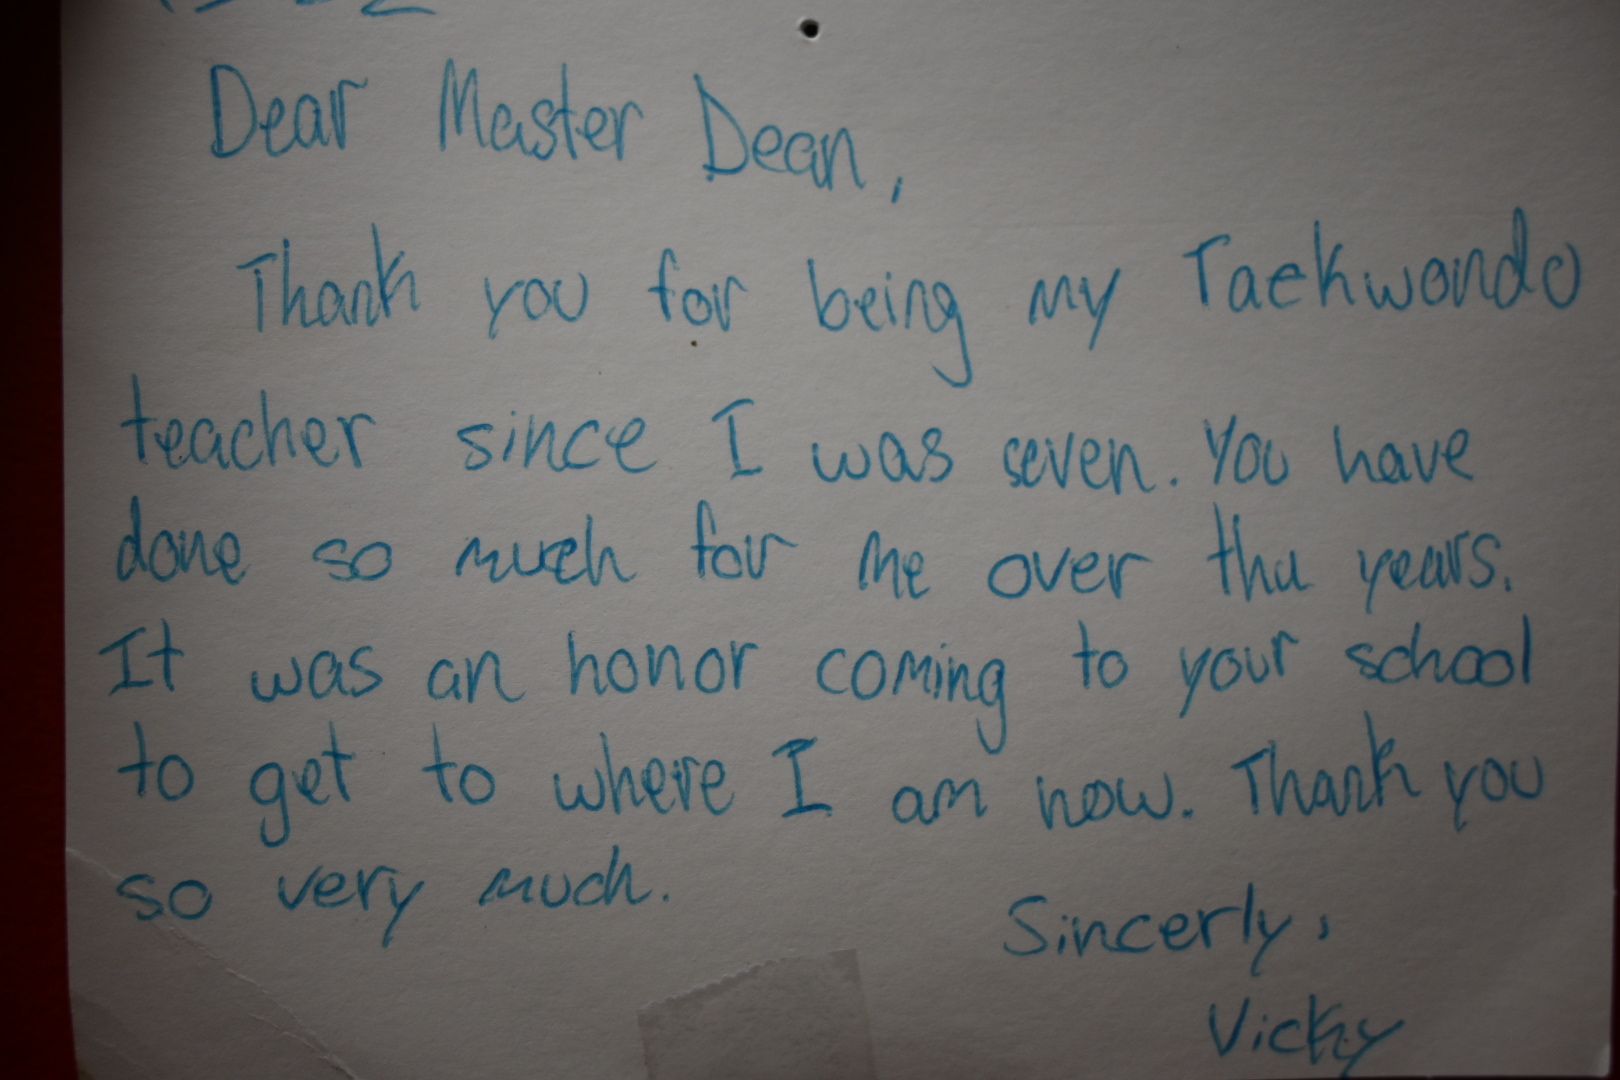 Dear Master Dean,
Thank you for being my Taekwondo
teacher since I was seven. You have
done so much for me over the years.
It was an honor coming to your school
to get to where I am now. Thank you
so very much.
Sincerly,
Vicky